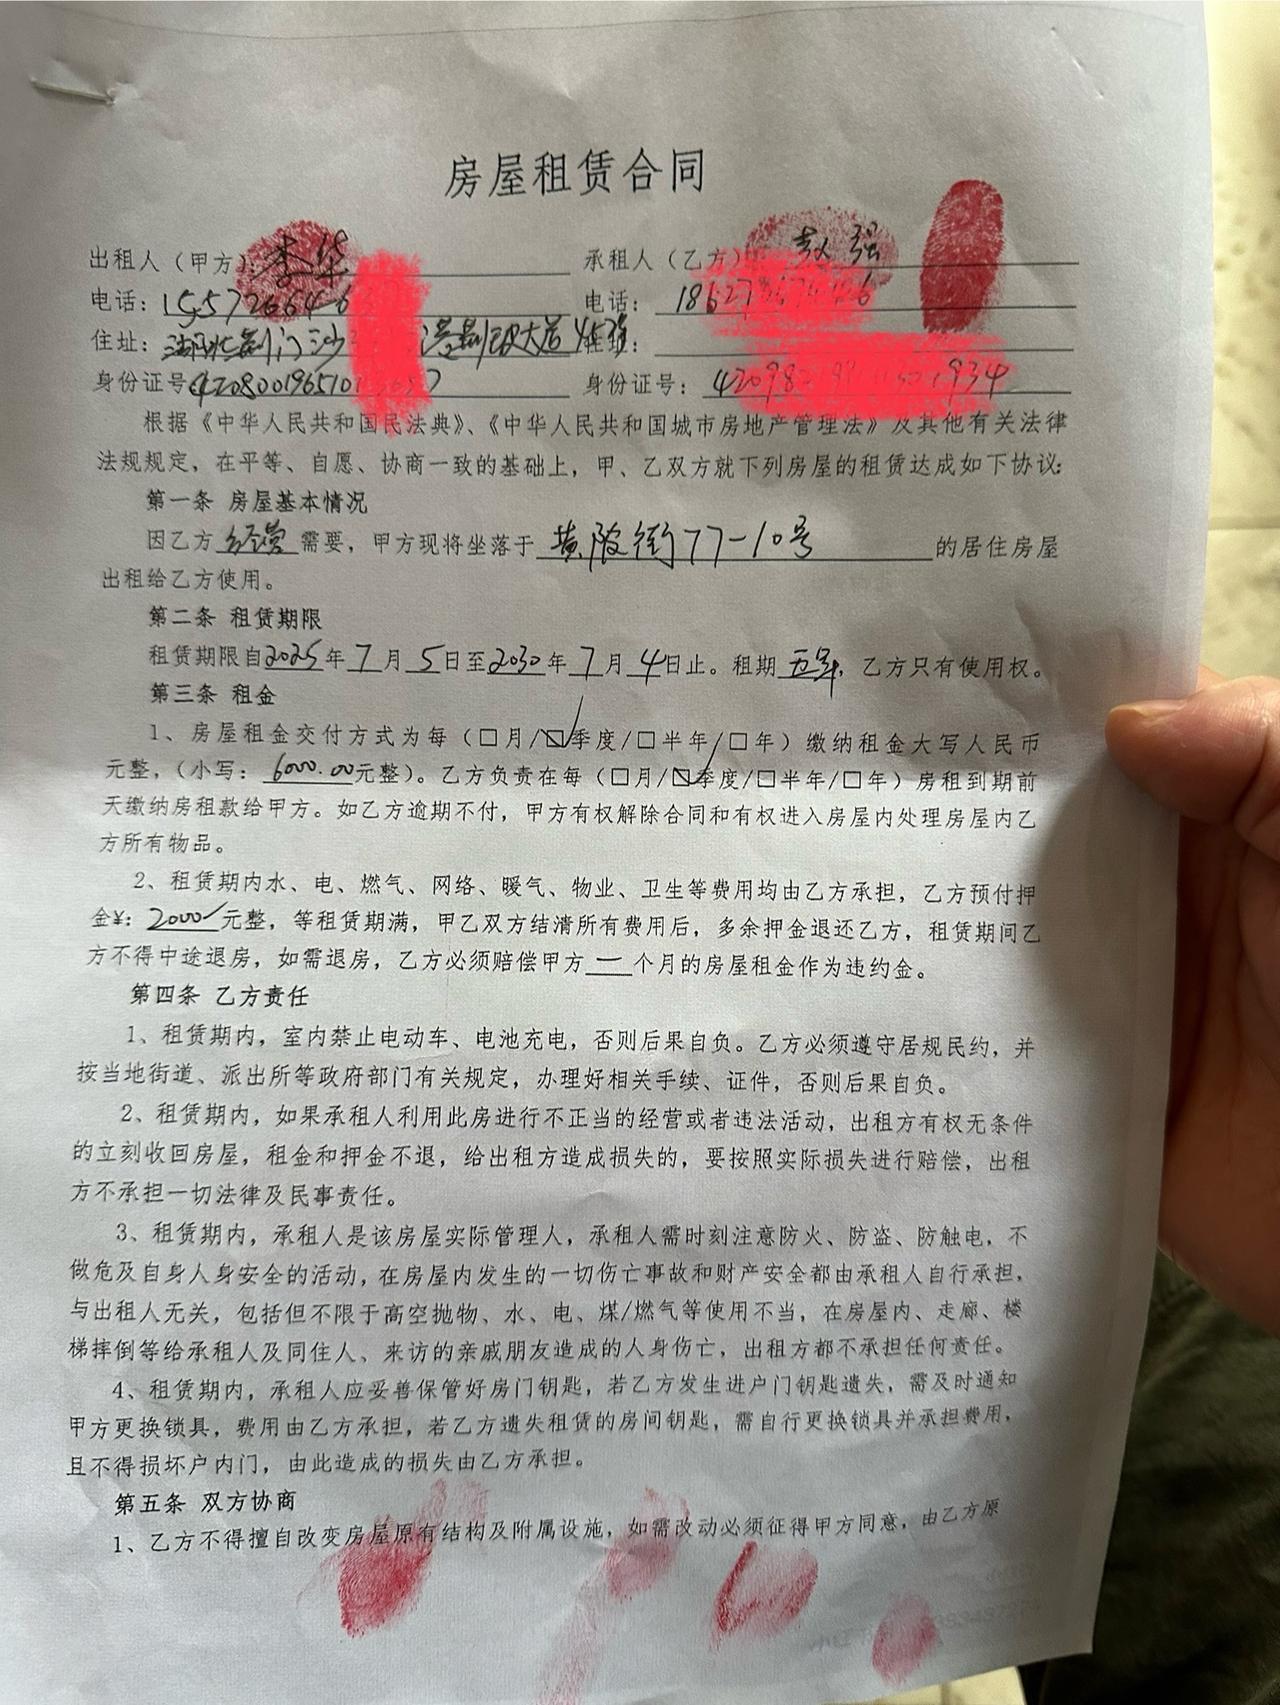 房屋租赁合同
出租人（甲方）：李华 承租人（乙方）：赵强
电话： 电话：
住址： 住址：
身份证号 身份证号：
根据《中华人民共和国民法典》、《中华人民共和国城市房地产管理法》及其他有关法律
法规规定，在平等、自愿、协商一致的基础上，甲、乙双方就下列房屋的租赁达成如下协议：
第一条 房屋基本情况
因乙方 经营 需要，甲方现将坐落于 黄陂街77-10号 的居住房屋
出租给乙方使用。
第二条 租赁期限
租赁期限自2025年 7 月 5日至2030年 7 月 4日止。租期 五年，乙方只有使用权。
第三条 租金
1、房屋租金交付方式为每（□月/☑季度/□半年/□年）缴纳租金大写人民币
元整，（小写： 6000.00元整）。乙方负责在每（□月/☑季度/□半年/□年）房租到期前
天缴纳房租款给甲方。如乙方逾期不付，甲方有权解除合同和有权进入房屋内处理房屋内乙
方所有物品。
2、租赁期内水、电、燃气、网络、暖气、物业、卫生等费用均由乙方承担，乙方预付押
金¥：2000元整，等租赁期满，甲乙双方结清所有费用后，多余押金退还乙方，租赁期间乙
方不得中途退房，如需退房，乙方必须赔偿甲方 一 个月的房屋租金作为违约金。
第四条 乙方责任
1、租赁期内，室内禁止电动车、电池充电，否则后果自负。乙方必须遵守居规民约，并
按当地街道、派出所等政府部门有关规定，办理好相关手续、证件，否则后果自负。
2、租赁期内，如果承租人利用此房进行不正当的经营或者违法活动，出租方有权无条件
的立刻收回房屋，租金和押金不退，给出租方造成损失的，要按照实际损失进行赔偿，出租
方不承担一切法律及民事责任。
3、租赁期内，承租人是该房屋实际管理人，承租人需时刻注意防火、防盗、防触电，不
做危及自身人身安全的活动，在房屋内发生的一切伤亡事故和财产安全都由承租人自行承担，
与出租人无关，包括但不限于高空抛物、水、电、煤/燃气等使用不当，在房屋内、走廊、楼
梯摔倒等给承租人及同住人、来访的亲戚朋友造成的人身伤亡，出租方都不承担任何责任。
4、租赁期内，承租人应妥善保管好房门钥匙，若乙方发生进户门钥匙遗失，需及时通知
甲方更换锁具，费用由乙方承担，若乙方遗失租赁的房间钥匙，需自行更换锁具并承担费用，
且不得损坏户内门，由此造成的损失由乙方承担。
第五条 双方协商
1、乙方不得擅自改变房屋原有结构及附属设施，如需改动必须征得甲方同意，由乙方原